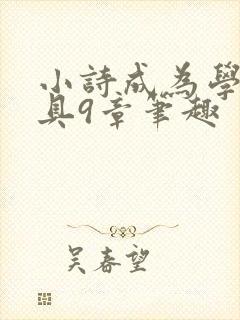 小詩成為學
具9章筆趣
吴春望